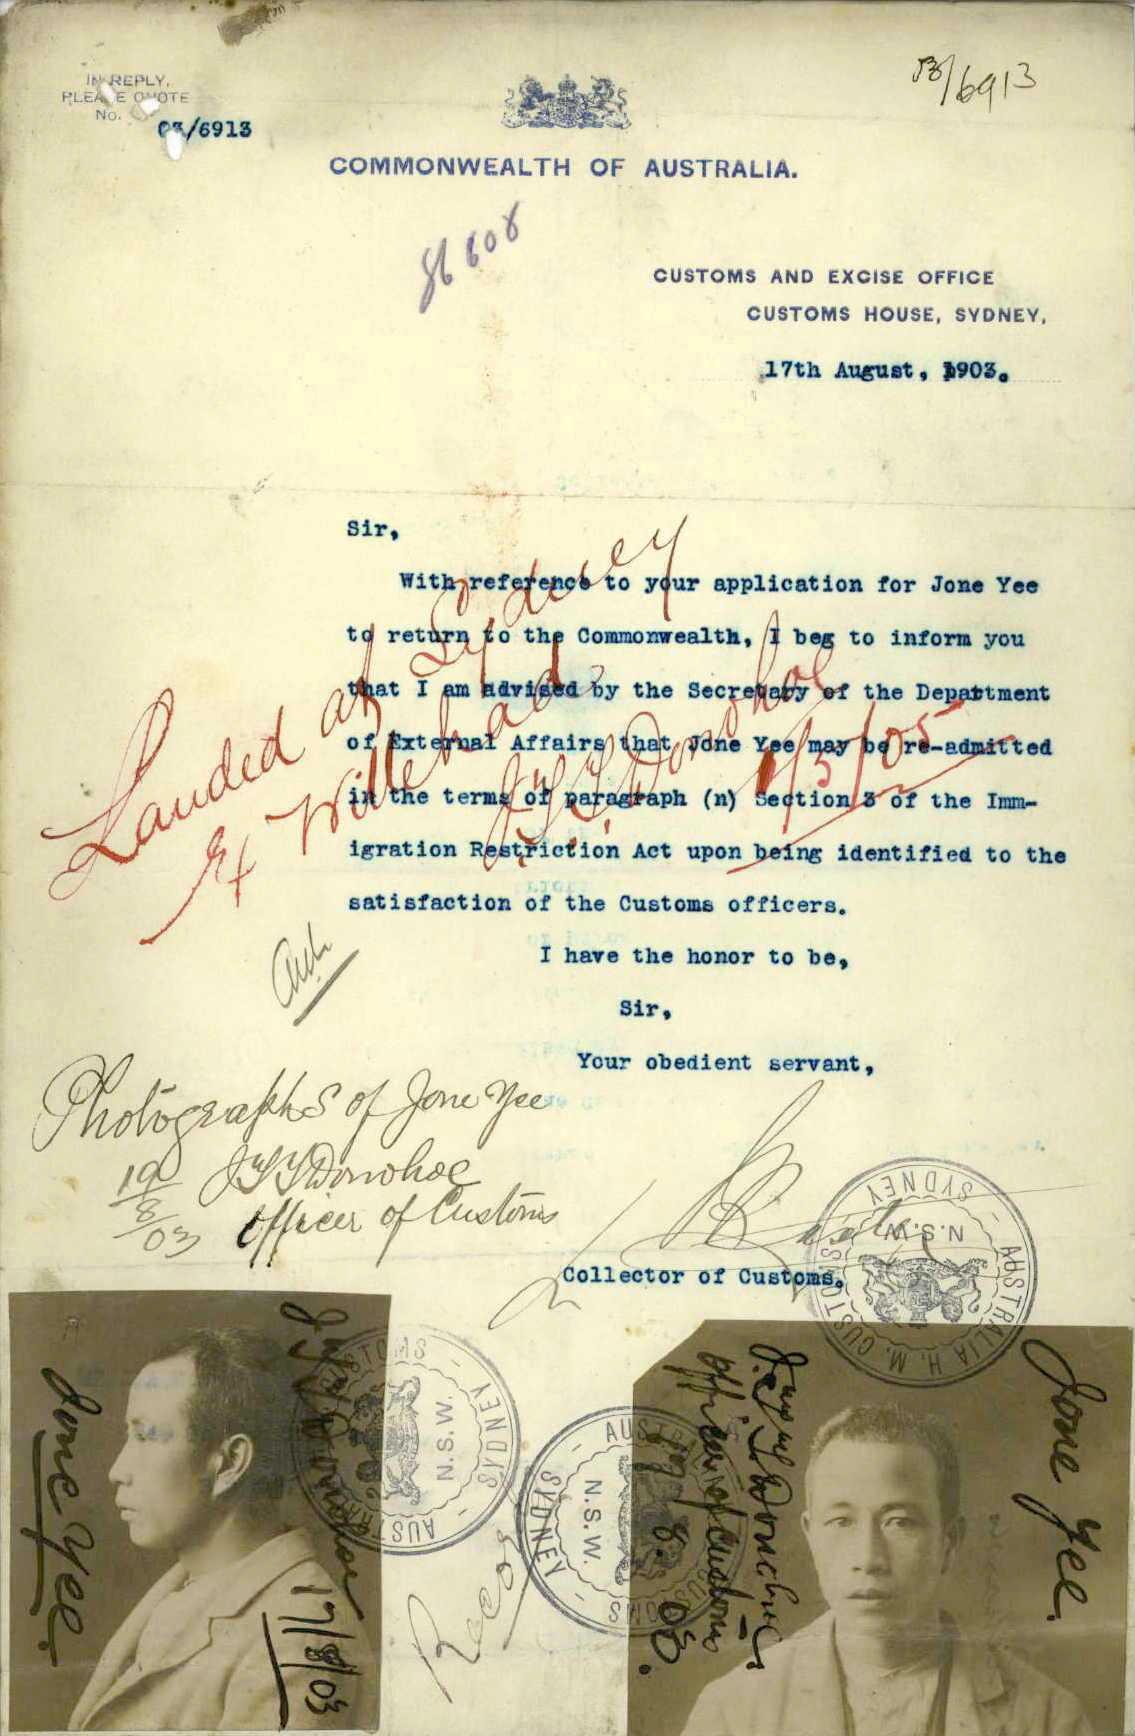 IN REPLY,
PLEASE QUOTE
No. 03/6913
03/6913
COMMONWEALTH OF AUSTRALIA.
86608
CUSTOMS AND EXCISE OFFICE
CUSTOMS HOUSE, SYDNEY,
17th August, 1903.
Sir,
With reference to your application for Jone Yee
to return to the Commonwealth, I beg to inform you
that I am advised by the Secretary of the Department
of External Affairs that Jone Yee may be re-admitted
in the terms of paragraph (n) Section 3 of the Imm-
igration Restriction Act upon being identified to the
satisfaction of the Customs officers.
I have the honor to be,
Sir,
Your obedient servant,
Collector of Customs.
Landed at Sydney
Ex Willehad
J.T.T. Donohoe
1/3/05
Photographs of Jone Yee
19/8/03
JTTDonohoe
Officer of Customs
AUSTRALIA H. M. CUSTOMS
SYDNEY
N.S.W.
Jone Yee.
JTTDonohoe
17/8/03
CUSTOMS
SYDNEY
AUSTRALIA
N.S.W.
AUSTRALIA
CUSTOMS
SYDNEY
N.S.W.
Donohoe
Officer of Customs
8.03.
Jone Yee.